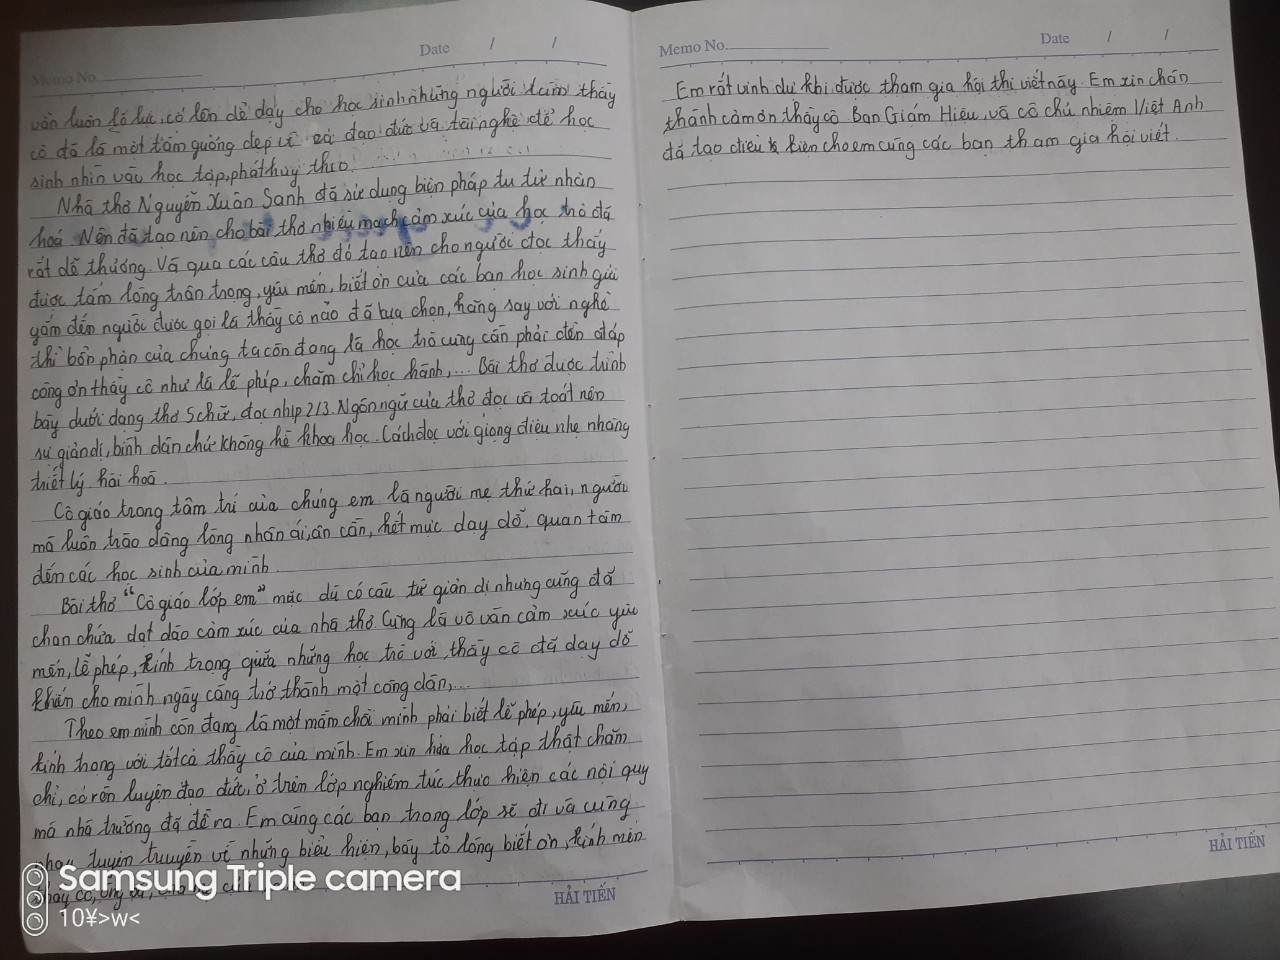 Memo No.
Date / /
vẫn luôn lỗ lực, cố lên để dạy cho học sinh những người làm thầy
cô đó là một tấm gương đẹp về cả đạo đức và tài nghệ để học
sinh nhìn vào học tập, phát huy theo.
Nhà thơ Nguyễn Xuân Sanh đã sử dụng biện pháp tu từ nhân
hoá. Nên đã tạo nên cho bài thơ nhiều mạch cảm xúc của học trò đã
rất dễ thương. Và qua các câu thơ đó tạo nên cho người đọc thấy
được tấm lòng trân trọng, yêu mến, biết ơn của các bạn học sinh gửi
gắm đến người được gọi là thầy cô nào đã lựa chọn, hăng say với nghề
thì bổn phận của chúng ta còn đang là học trò cũng cần phải đền đáp
công ơn thầy cô như là lễ phép, chăm chỉ học hành,... Bài thơ được trình
bày dưới dạng thơ 5 chữ, đọc nhịp 2/3. Ngôn ngữ của thơ đọc và toát nên
sự giản dị, bình dân chứ không hề khoa học. Cách đọc với giọng điệu nhẹ nhàng
triết lý hài hoà.
Cô giáo trong tâm trí của chúng em là người mẹ thứ hai, người
mà luôn trào dâng lòng nhân ái, ân cần, hết mực dạy dỗ, quan tâm
đến các học sinh của mình.
Bài thơ "Cô giáo lớp em" mặc dù có câu từ giản dị nhưng cũng đã
chan chứa dạt dào cảm xúc của nhà thơ. Cũng là vô vàn cảm xúc yêu
mến, lễ phép, kính trọng giữa những học trò với thầy cô đã dạy dỗ
khiến cho mình ngày càng trở thành một công dân,...
Theo em mình còn đang là một mầm chồi mình phải biết lễ phép, yêu mến,
kính trọng với tất cả thầy cô của mình. Em xin hứa học tập thật chăm
chỉ, có rèn luyện đạo đức, ở trên lớp nghiêm túc thực hiện các nội quy
mà nhà trường đã đề ra. Em cùng các bạn trong lớp sẽ đi và cùng
nhau tuyên truyền về những biểu hiện, bày tỏ lòng biết ơn, kính mến
thầy cô,
HẢI TIẾN
Memo No.
Date / /
Em rất vinh dự khi được tham gia hội thi viết này. Em xin chân
thành cảm ơn thầy cô Ban Giám Hiệu, và cô chủ nhiệm Việt Anh
đã tạo điều kiện cho em cùng các bạn tham gia hội viết.
HẢI TIẾN
Samsung Triple camera
10¥>w<